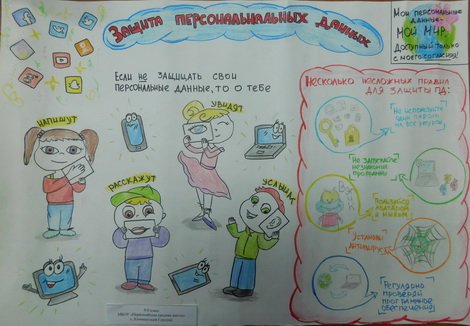 ЗАЩИТА ПЕРСОНАЛЬНАЛЬНЫХ ДАННЫХ
Мои персональные
данные-
МОЙ МИР,
Доступный только
с моего согласия!
Если не защищать свои
персональные данные, то о тебе
НАПИШУТ
УВИДЯТ
РАССКАЖУТ
УСЛЫШАТ
Несколько несложных правил
для защиты ПД:
Не используйте
один пароль
на все ресурсы
Не запускайте
незнакомые
программы
Пользуйся
аватаркой
и ником
Установи
антивирус
Регулярно
проверяй
программное
обеспечение